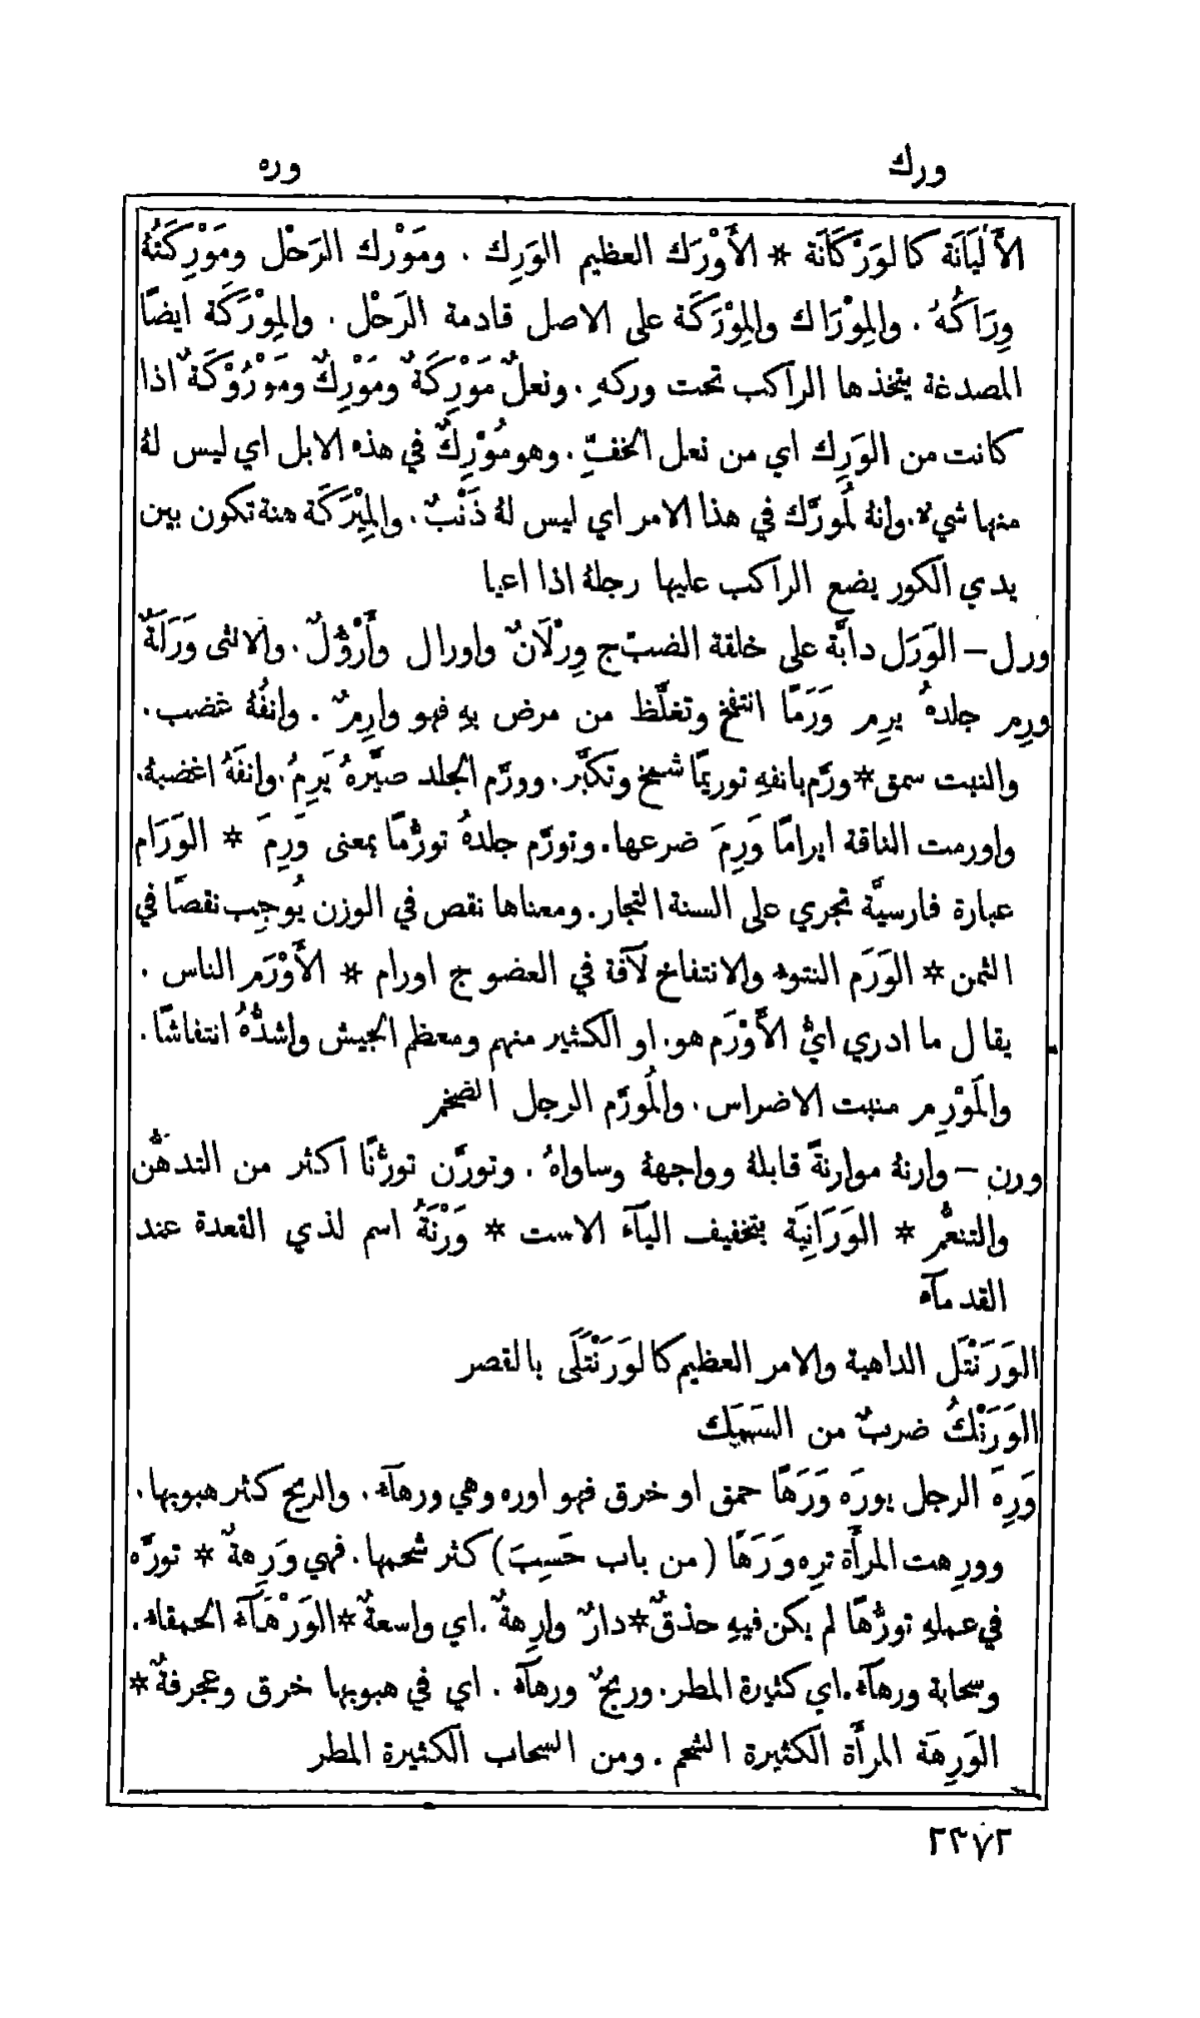 ورك
وره
الأَلْيَانَة كالوَرْكَانَة * الأَوْرَك العظيم الوَرِك . ومَوْرك الرَحْل ومَوْرِكَتُهُ
وِرَاكُهُ . والمِوْرَاك والمِوْرَكَة على الاصل قادمة الرَحْل . والمِوْرَكَة ايضًا
المصدغة يتخذها الراكب تحت وركهِ . ونعلٌ مَوْرِكَةٌ ومَوْرِكٌ ومَوْرُوْكَةٌ اذا
كانت من الوَرِك اي من نعل الخفّ . وهو مُوْرِكٌ في هذه الابل اي ليس لهُ
منها شيءٌ . وانهُ لَمُورَّك في هذا الامر اي ليس لهُ ذَنْبٌ . والمِيْرَكَة هنة تكون بين
يدي الكور يضع الراكب عليها رجلهُ اذا اعيا
ورل – الوَرَل دابَّة على خلقة الضبّ ج وِرْلَانٌ واورال وأَرْؤُلٌ . والانثى وَرَلَةٌ
ورِم جلدهُ يرِم وَرَمًا انتفخ وتغلَّظ من مرض بهِ فهو وارِمٌ . وانفُهُ غضب .
والنبت سمق * ورَّم بانفهِ توريمًا شمخ وتكبَّر . وورَّم الجلد صيَّرهُ يَرِمُ . وانفَهُ اغضبهُ .
واورمت الناقة ايرامًا وَرِمَ ضرعها . وتورَّم جلدهُ تورُّمًا بمعنى وَرِمَ * الوَرَام
عبارة فارسيَّة تجري على السنة التجار . ومعناها نقص في الوزن يُوجِب نقصًا في
الثمن * الوَرَم النتوء والانتفاخ لآفة في العضو ج اورام * الأَوْرَم الناس .
يقال ما ادري ايُّ الأَوْرَم هو . او الكثير منهم ومعظم الجيش واشدُّهُ انتفاشًا .
والمَوْرِم منبت الاضراس . والمُورَّم الرجل الضخم
ورن – وارنهُ موارنةً قابلهُ وواجههُ وساواهُ . وتورَّن تورُّنًا اكثر من التدهُّن
والتنعُّم * الوَرَانِيَة بتخفيف اليآء الاست * وَرْنَةُ اسم لذي القعدة عند
القدمآء
الوَرَنْتَل الداهية والامر العظيم كالوَرَنْتَلَى بالقصر
الوَرَنْكُ ضربٌ من السَمَك
وَرِهَ الرجل يورَه وَرَهًا حمق او خرق فهو اوره وهي ورهآء . والريح كثر هبوبها .
وورِهت المرأَة ترِه وَرَهًا (من باب حَسِبَ) كثر شحمها . فهي وَرِهةٌ * تورَّه
في عملهِ تورُّهًا لم يكن فيهِ حذقٌ * دارٌ وارِهةٌ . اي واسعةٌ * الوَرْهَآء الحمقاء .
وسحابة ورهآء . اي كثيرة المطر . وريحٌ ورهآء . اي في هبوبها خرق وعجرفةٌ *
الوَرِهَة المرأَة الكثيرة الشحم . ومن السحاب الكثيرة المطر
٢٢٧٢